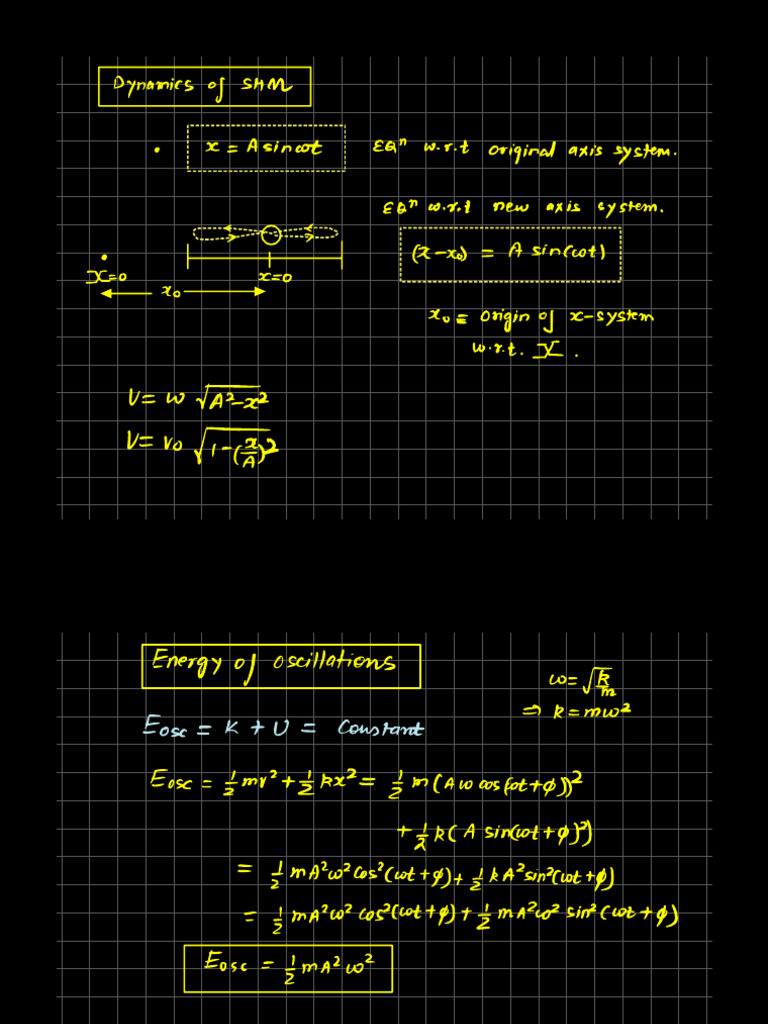 Dynamics of SHM
• x = A sinωt EQⁿ w.r.t original axis system.
EQⁿ w.r.t new axis system.
(x-x₀) = A sin(ωt)
X=0 x=0
x₀
x₀ = origin of x-system
w.r.t. X.
V= ω √(A²-x²)
V= v₀ √(1-(x/A)²)
Energy of oscillations
ω=√(k/m)
⇒ k=mω²
Eosc = K + U = Constant
Eosc = ½mv²+½kx²= ½ m(Aω cos(ωt+ϕ))²
+½k(A sin(ωt+ϕ)²)
= ½ mA²ω²cos²(ωt+ϕ)+½kA²sin²(ωt+ϕ)
= ½ mA²ω² cos²(ωt+ϕ)+½ mA²ω² sin²(ωt+ϕ)
Eosc = ½ mA²ω²